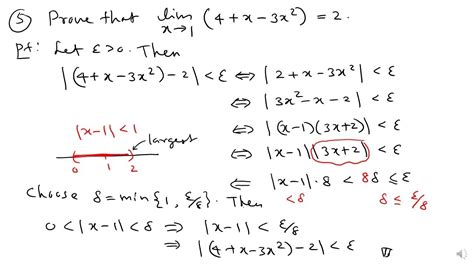 ⑤ Prove that lim x→1 (4 + x − 3x²) = 2.
Pf: Let ε > 0. Then
|(4 + x − 3x²) − 2| < ε ⇔ |2 + x − 3x²| < ε
⇔ |3x² − x − 2| < ε
|x − 1| < 1 ⇔ |(x − 1)(3x + 2)| < ε
largest ⇔ |x − 1| |3x + 2| < ε
0 1 2 ⇐ |x − 1| · 8 < 8δ ≤ ε
Choose δ = min{1, ε/8}. Then < δ δ ≤ ε/8
0 < |x − 1| < δ ⇒ |x − 1| < ε/8
⇒ |(4 + x − 3x²) − 2| < ε